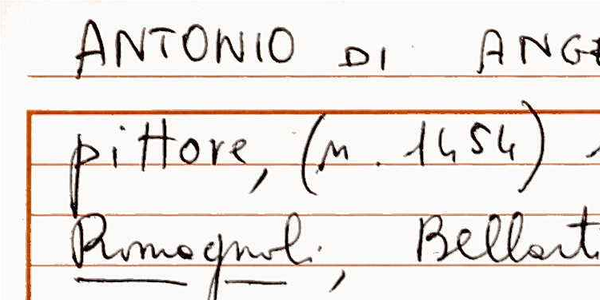 ANTONIO DI ANGE
pittore, (n. 1454)
Romagnoli, Bellart